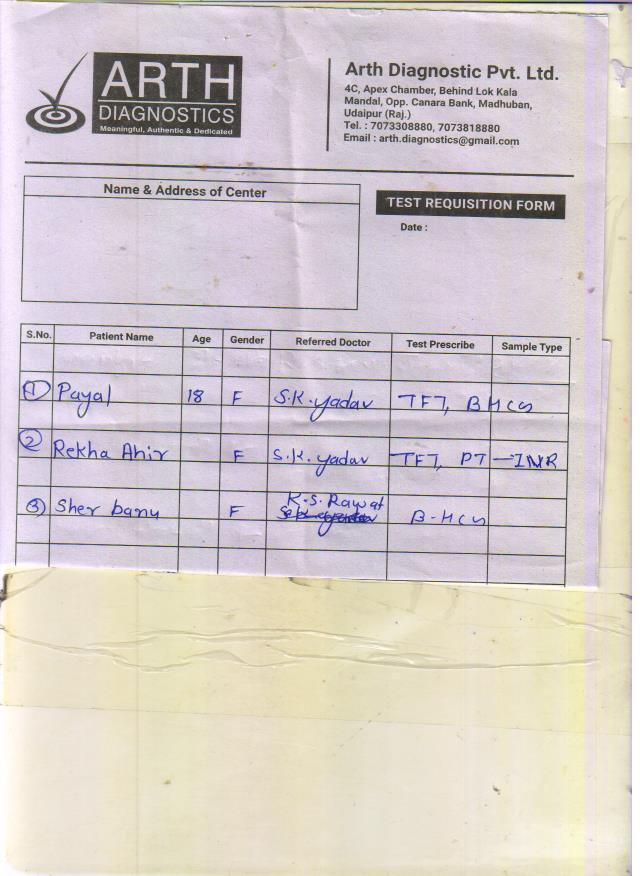 ARTH
DIAGNOSTICS
Meaningful, Authentic & Dedicated
Arth Diagnostic Pvt. Ltd.
4C, Apex Chamber, Behind Lok Kala
Mandal, Opp. Canara Bank, Madhuban,
Udaipur (Raj.)
Tel. : 7073308880, 7073818880
Email : arth.diagnostics@gmail.com
Name & Address of Center
TEST REQUISITION FORM
Date :
S.No. Patient Name Age Gender Referred Doctor Test Prescribe Sample Type
1 Payal 18 F S.K. yadav TFT, B HCG
2 Rekha Ahir F S.K. yadav TFT, PT-INR
3 Sher banu F K.S. Rawat B-HCG